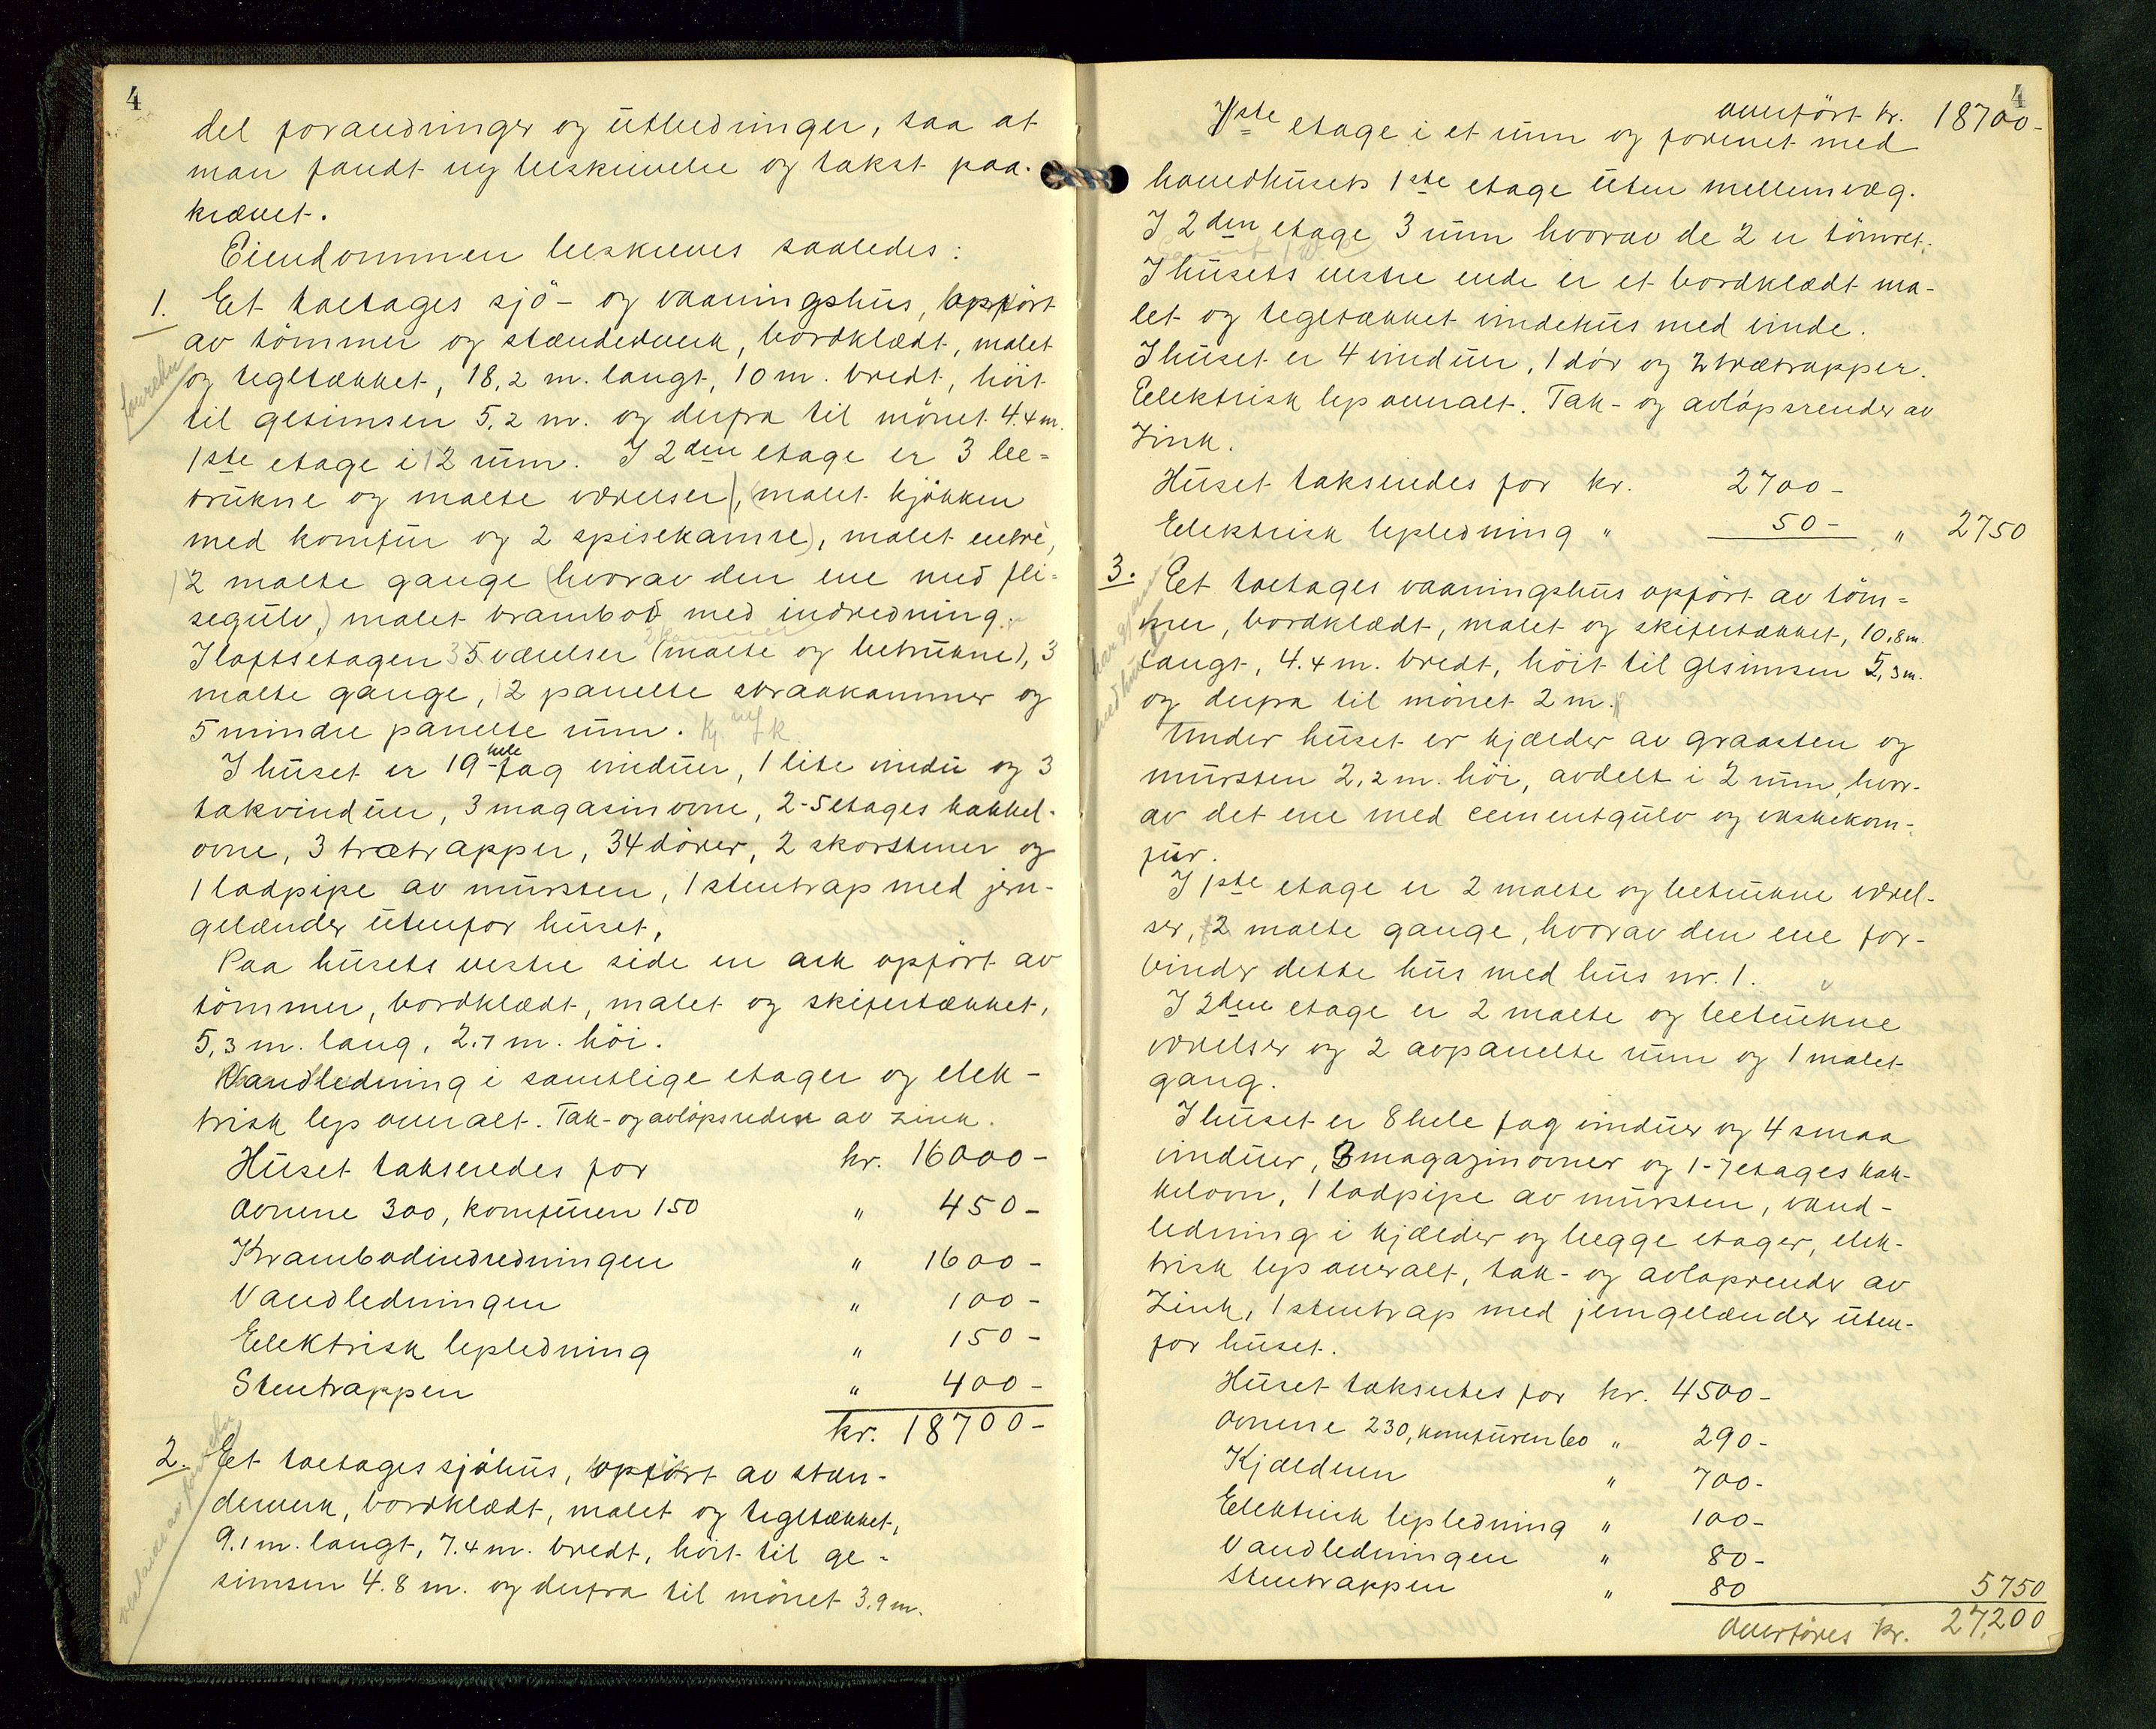 4
del forandringer og utbedringer, saa at
man fandt ny beskrivelse og takst paa-
krævet.
Eiendommen beskrives saaledes:
1. Et toetages sjö- og vaaningshus, opfört
av tömmer og stænderverk, bordklædt, malet
og tegltækket, 18,2 m. langt, 10 m. bredt, höit
til gesimsen 5,2 m. og derfra til mönet 4.4 m.
1ste etage i 2 rum. I 2den etage er 3 be-
trukne og malte værelser, (malet kjökken
med komfur og 2 spisekamre), malet entré,
2 malte gange (hvorav den ene med fli-
segulv,) malet krambod med indredning.
I loftsetagen 5 værelser (malte og betrukne), 3
malte gange, 2 panelte straakammer og
5 mindre panelte rum.
I huset er 19 hele fag vinduer, 1 lite vindu og 3
takvinduer, 3 magasinovne, 2-5etages kakkel-
ovne, 3 trætrapper, 34 dörer, 2 skorstener og
1 ladpipe av mursten, 1 stentrap med jern-
gelænder utenfor huset,
Paa husets vestre side en ark opfört av
tömmer, bordklædt, malet og skifertækket,
5,3 m. lang, 2.7 m. höi.
Vandledning i samtlige etager og elek-
trisk lys overalt. Tak- og avlöpsreder av zink.
Huset takseredes for kr. 16000-
Ovnene 300, komfuren 150 " 450-
Krambodindredningen " 1600-
Vandledningen " 100-
Elektrisk lysledning " 150-
Stentrappen " 400-
kr. 18700-
2. Et toetages sjöhus, opfört av stæn-
derverk, bordklædt, malet og tegltækket,
9.1 m. langt, 7.4 m. bredt, höit til ge-
simsen 4.8 m. og derfra til mönet 3.9 m.
4
overfört kr. 18700-
1ste etage i et rum og forenet med
hovedhusets 1ste etage uten mellemvæg.
I 2den etage 3 rum hvorav de 2 er tömret.
I husets vestre ende er et bordklædt ma-
let og tegltækket vindehus med vinde.
I huset er 4 vinduer, 1 dör og 2 trætrapper.
Elektrisk lys overalt. Tak- og avlöpsrender av
Zink.
Huset takseredes for kr. 2700-
Elektrisk lysledning " 50- " 2750
3. Et toetages vaaningshus opfört av töm-
mer, bordklædt, malet og skifertækket, 10,8 m.
langt, 4.4 m. bredt, höit til gesimsen 5,3 m.
og derfra til mönet 2 m.
Under huset er kjælder av graasten og
mursten 2,2 m. höi, avdelt i 2 rum, hvor-
av det ene med cementgulv og vaskekom-
fur.
I 1ste etage er 2 malte og betrukne værel-
ser, 2 malte gange, hvorav den ene for-
binder dette hus med hus nr. 1.
I 2den etage er 2 malte og betrukne
værelser og 2 avpanelte rum og 1 malet
gang.
I huset er 8 hele fag vinduer og 4 smaa
vinduer, 3 magazinovner og 1-7etages kak-
kelovn, 1 ladpipe av mursten, vand-
ledning i kjælder og begge etager, elek-
trisk lys overalt, tak- og avlöprender av
Zink, 1 stentrap med jerngelænder uten-
for huset.
Huset taksertes for kr. 4500-
Ovnene 230, komfuren 60 " 290-
Kjælderen " 700-
Elektrisk lysledning " 100-
Vandledningen " 80-
Stentrappen " 80 5750
Overföres kr. 27,200